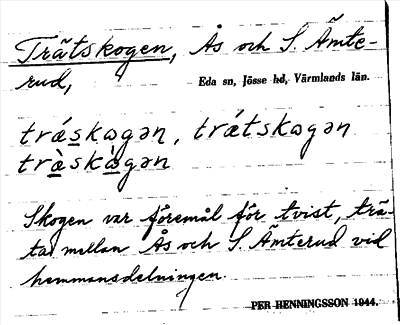 Trätskogen, Ås och S. Ämte-
rud,
Eda sn, Jösse hd, Värmlands län.
träskogən, trätskogən
träskogən
Skogen var föremål för tvist, trä-
ta, mellan Ås och S. Ämterud vid
hemmansdelningen.
PER HENNINGSSON 1944.